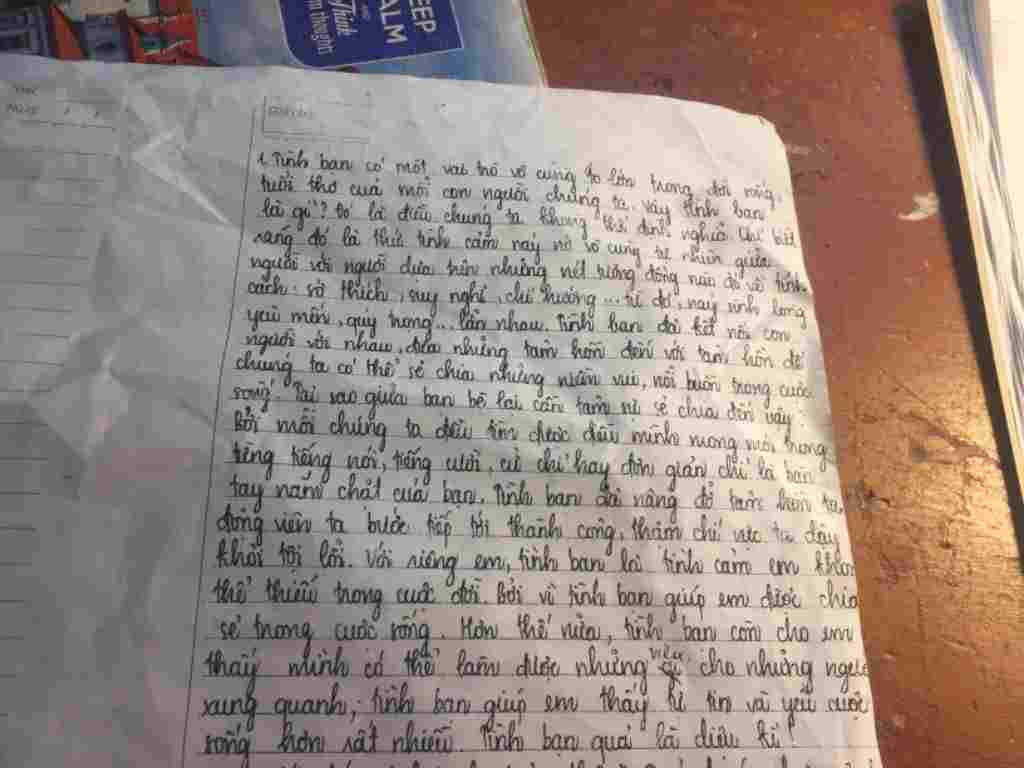 EEP
ALM
AND
Think
m thoughts
1. Tình bạn có một vai trò vô cùng to lớn trong đời sống,
tuổi thơ của mỗi con người chúng ta. Vậy tình bạn
là gì? Đó là điều chúng ta không thể định nghĩa. Chỉ biết
rằng đó là thứ tình cảm nảy nở vô cùng tự nhiên giữa
người với người dựa trên những nét tương đồng nào đó về tính
cách: sở thích, suy nghĩ, chí hướng... từ đó, nảy sinh lòng
yêu mến, quý trọng... lẫn nhau. Tình bạn đã kết nối con
người với nhau, đưa những tâm hồn đến với tâm hồn để
chúng ta có thể sẻ chia những niềm vui, nỗi buồn trong cuộc
sống. Tại sao giữa bạn bè lại cần tâm sự sẻ chia đến vậy?
Bởi mỗi chúng ta đều tìm được điều mình mong mỏi trong
từng tiếng nói, tiếng cười, cử chỉ hay đơn giản chỉ là bàn
tay nắm chặt của bạn. Tình bạn đã nâng đỡ tâm hồn ta,
động viên ta bước tiếp tới thành công, thậm chí vực ta dậy
khỏi tội lỗi. Với riêng em, tình bạn là tình cảm em không
thể thiếu trong cuộc đời. Bởi vì tình bạn giúp em được chia
sẻ trong cuộc sống. Hơn thế nữa, tình bạn còn cho em
thấy mình có thể làm được những việc gì cho những người
xung quanh, tình bạn giúp em thấy tự tin và yêu cuộc
sống hơn rất nhiều. Tình bạn quả là diệu kì!